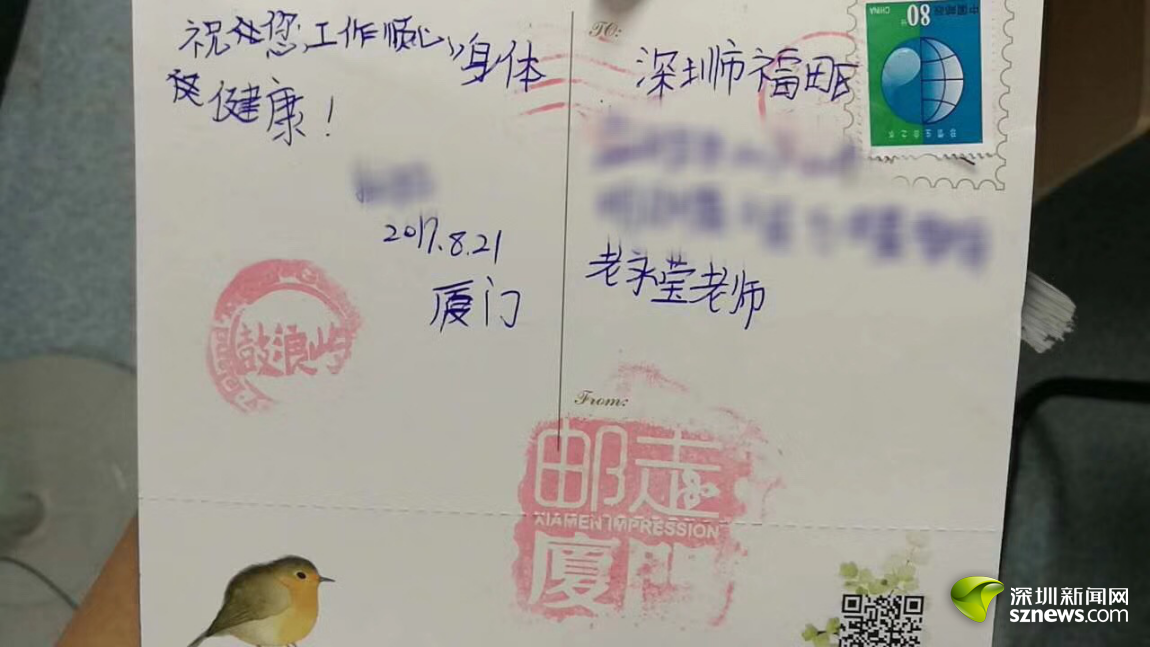 祝您工作顺心,身体
健康!
2017.8.21
厦门
鼓浪屿
TO:
深圳市福田区
老永莹老师
From:
邮走
XIAMEN IMPRESSION
厦门
80
CHINA
中国邮政
深圳新闻网
sznews.com